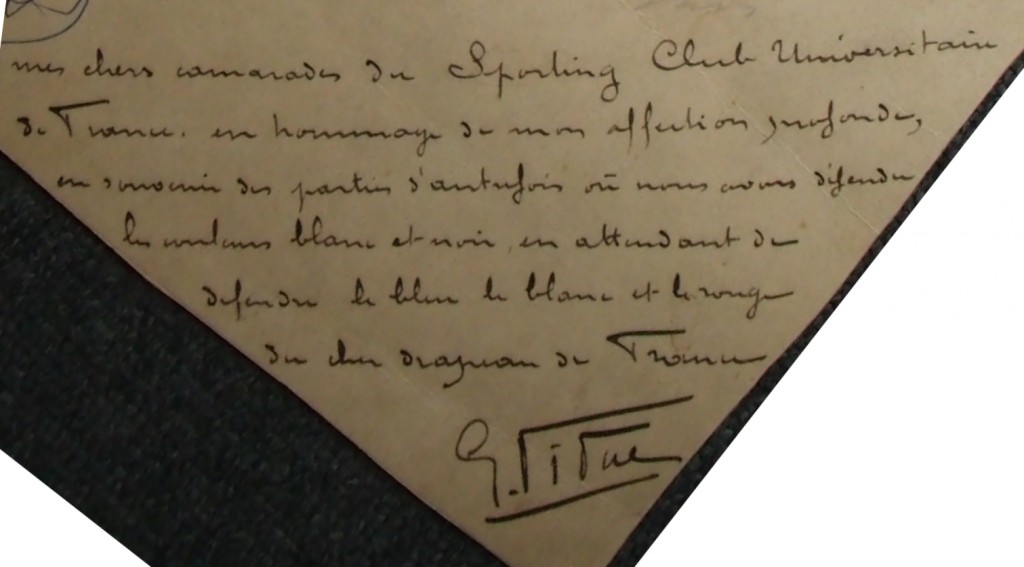 mes chers camarades du Sporting Club Universitaire
de France. en hommage de mon affection profonde,
en souvenir des parties d'autrefois où nous avons défendu
les couleurs blanc et noir, en attendant de
défendre le bleu le blanc et le rouge
du cher drapeau de France
G.